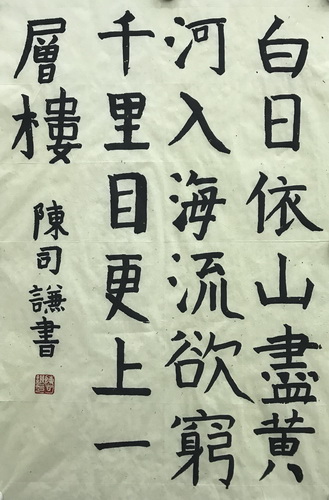 白日依山盡黃
河入海流欲窮
千里目更上一
層樓
陳司謙書